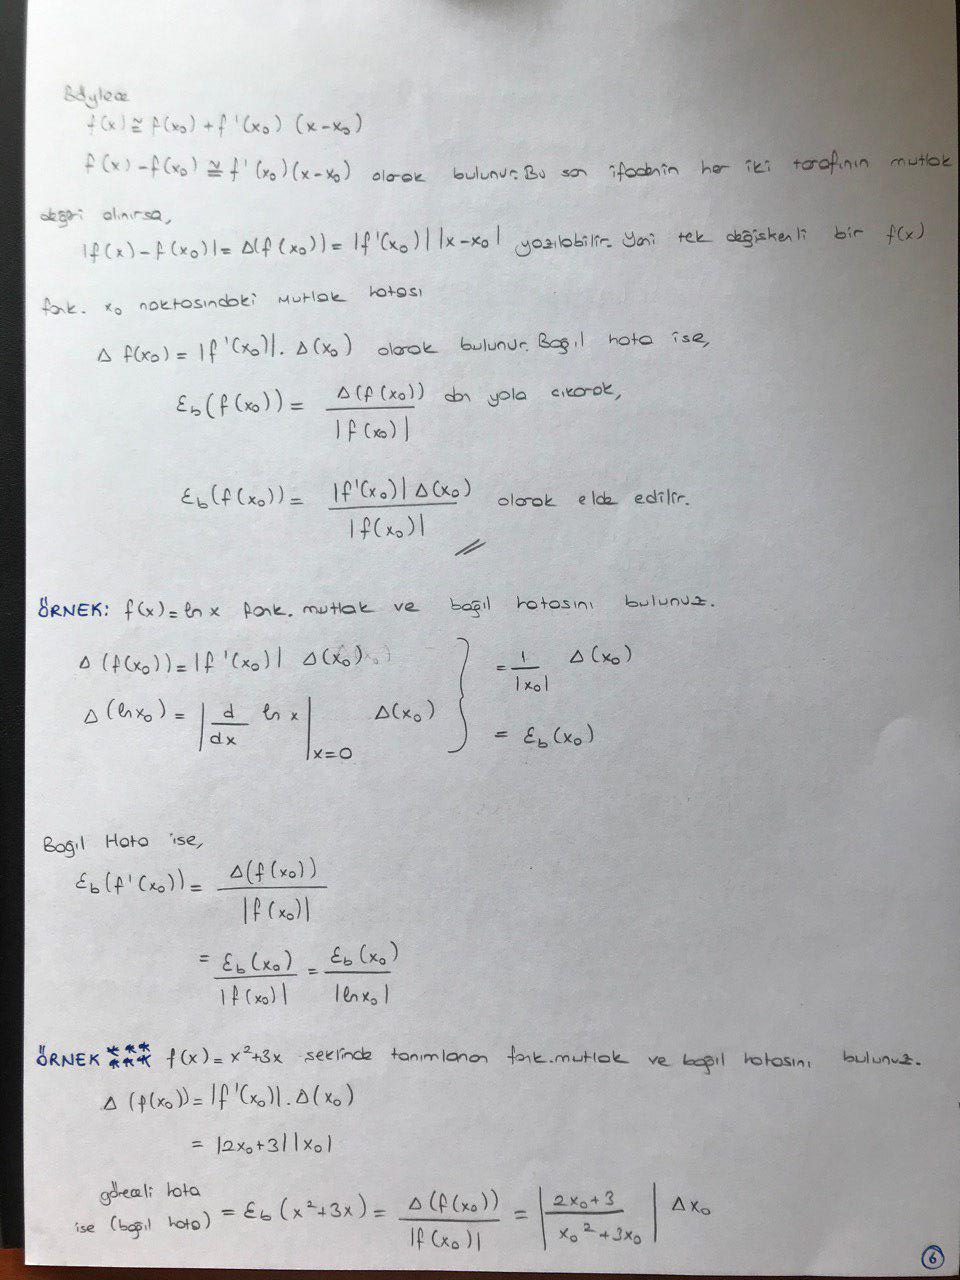 Böylece
f(x) ≅ f(x₀) + f'(x₀) (x-x₀)
f(x) - f(x₀) ≅ f'(x₀)(x-x₀) olarak bulunur. Bu son ifadenin her iki tarafının mutlak
değeri alınırsa,
|f(x) - f(x₀)| = Δ(f(x₀)) = |f'(x₀)| |x-x₀| yazılabilir. Yani tek değişkenli bir f(x)
fonk. x₀ noktasındaki mutlak hatası
Δ f(x₀) = |f'(x₀)|. Δ(x₀) olarak bulunur. Bağıl hata ise,
Ɛb(f(x₀)) = Δ(f(x₀)) / |f(x₀)| dan yola çıkarak,
Ɛb(f(x₀)) = |f'(x₀)| Δ(x₀) / |f(x₀)| olarak elde edilir.
ÖRNEK: f(x) = ln x fonk. mutlak ve bağıl hatasını bulunuz.
Δ (f(x₀)) = |f'(x₀)| Δ(x₀) } = 1 / |x₀| Δ(x₀)
Δ (ln x₀) = | d / dx ln x |x=0 Δ(x₀) } = Ɛb(x₀)
Bağıl Hata ise,
Ɛb(f'(x₀)) = Δ(f(x₀)) / |f(x₀)|
= Ɛb(x₀) / |f(x₀)| = Ɛb(x₀) / |ln x₀|
ÖRNEK ****** f(x) = x²+3x şeklinde tanımlanan fonk. mutlak ve bağıl hatasını bulunuz.
Δ (f(x₀)) = |f'(x₀)|. Δ(x₀)
= |2x₀+3| |x₀|
göreceli hata
ise (bağıl hata) = Ɛb (x²+3x) = Δ(f(x₀)) / |f(x₀)| = | 2x₀+3 / x₀²+3x₀ | Δx₀
6